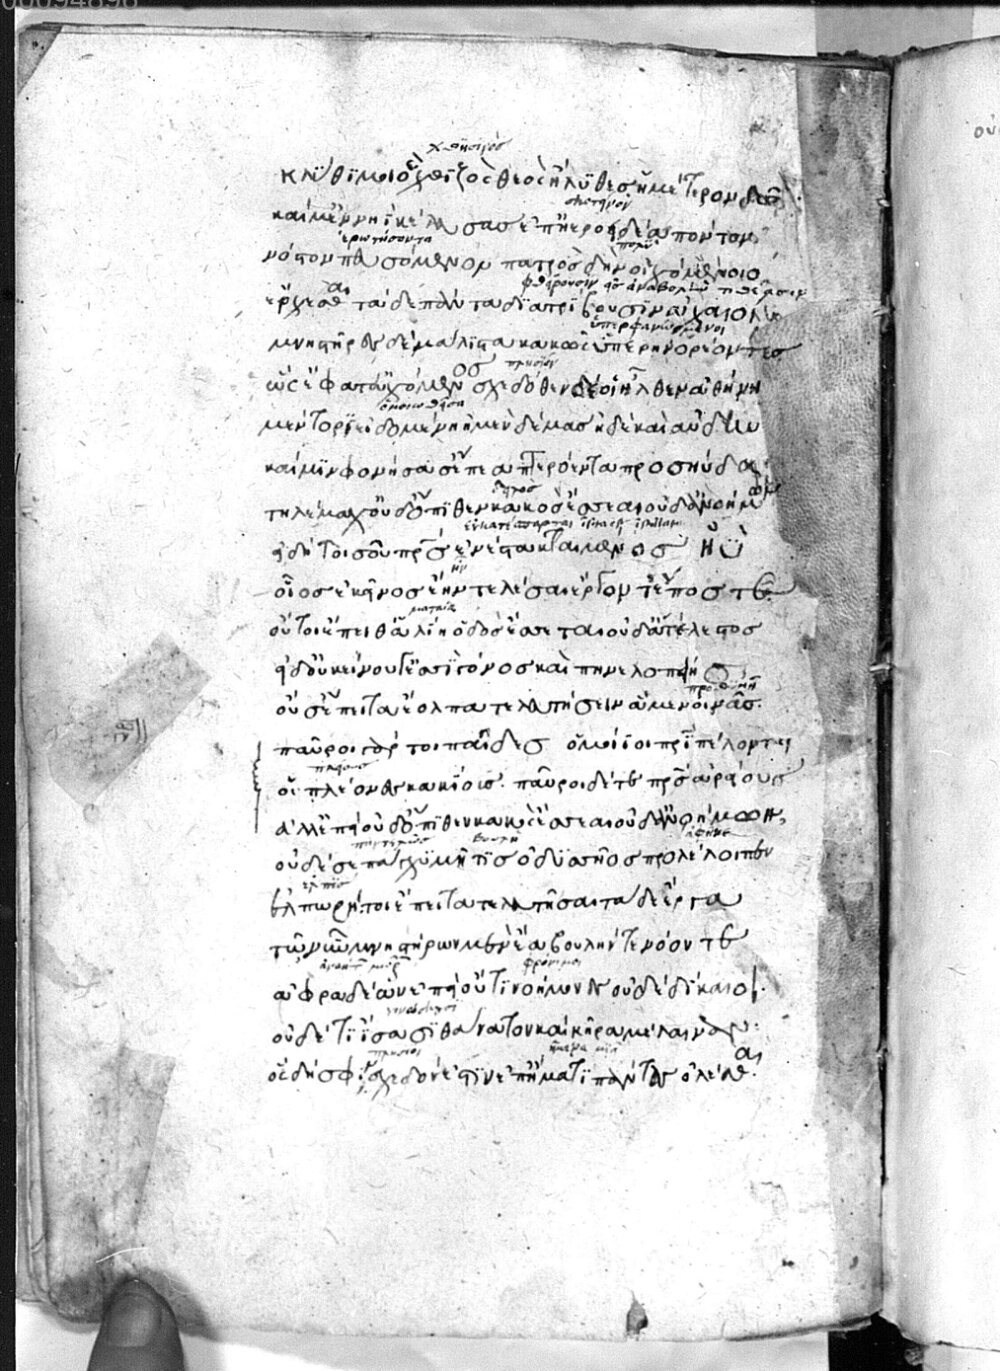 χθησινὸς
κλῦθι μοι ὃ χθιζὸς θεὸς ἤλυθες ἡμέτερον δῶ
σκοτεινὸν
καί μ' ἐν νηῒ κέλευσας ἐπ' ἠεροειδέα πόντον
ἐρωτήσοντα πολὺ
νόστον πευσόμενον πατρὸς δὴν οἰχομένοιο
φθείρουσιν
ἔρχεσθαι τάδε πάντα διατρίβουσιν ἀχαιοί
ὑπερηφανευόμενοι
μνηστῆρες δὲ μάλιστα κακῶς ὑπερηνορέοντες
πλησίον
ὣς ἔφατ' εὐχόμενος σχεδόθεν δέ οἱ ἦλθεν ἀθήνη
ὁμοιωθεῖσα
μέντορι εἰδομένη ἠμὲν δέμας ἠδὲ καὶ αὐδήν
καί μιν φωνήσασ' ἔπεα πτερόεντα προσηύδα
τηλέμαχ' οὐδ' ὄπιθεν κακὸς ἔσσεαι οὐδ' ἀνοήμων
εἰ δή τοι σοῦ πατρὸς ἐνέστακται μένος ἠΰ
ἦν
οἷος ἐκεῖνος ἔην τελέσαι ἔργον τε ἔπος τε
ματαία
οὔ τοι ἔπειθ' ἁλίη ὁδὸς ἔσσεται οὐδ' ἀτέλεστος
εἰ δ' οὐ κείνου γ' ἐσσὶ γόνος καὶ πηνελοπείης
οὐ σ' ἔπειτα ἔολπα τελευτήσειν ἃ μενοινᾷς.
παῦροι γάρ τοι παῖδες ὁμοῖοι πατρὶ πέλονται
οἱ πλέονες κακίους. παῦροι δέ τε πατρὸς ἀρείους
ἀλλ' ἐπεὶ οὐδ' ὄπιθεν κακὸς ἔσσεαι οὐδ' ἀνοήμων,
παντελῶς βουλὴ ἀφῆκε
οὐδέ σε πάγχυ μῆτις ὀδυσσῆος προλέλοιπεν
ἐλπὶς
ἐλπωρή τοι ἔπειτα τελευτῆσαι τάδε ἔργα
τῶ νῦν μνηστήρων μὲν ἔα βουλήν τε νόον τε
φρόνιμοι
ἀφραδέων ἐπεὶ οὔ τι νοήμονες οὐδὲ δίκαιοι.
οὐδέ τι ἴσασι θάνατον καὶ κῆρα μέλαιναν.
πλησίον
ὃς δή σφι σχεδόν ἐστιν ἐπ' ἤματι πάντας ὀλέσθαι.